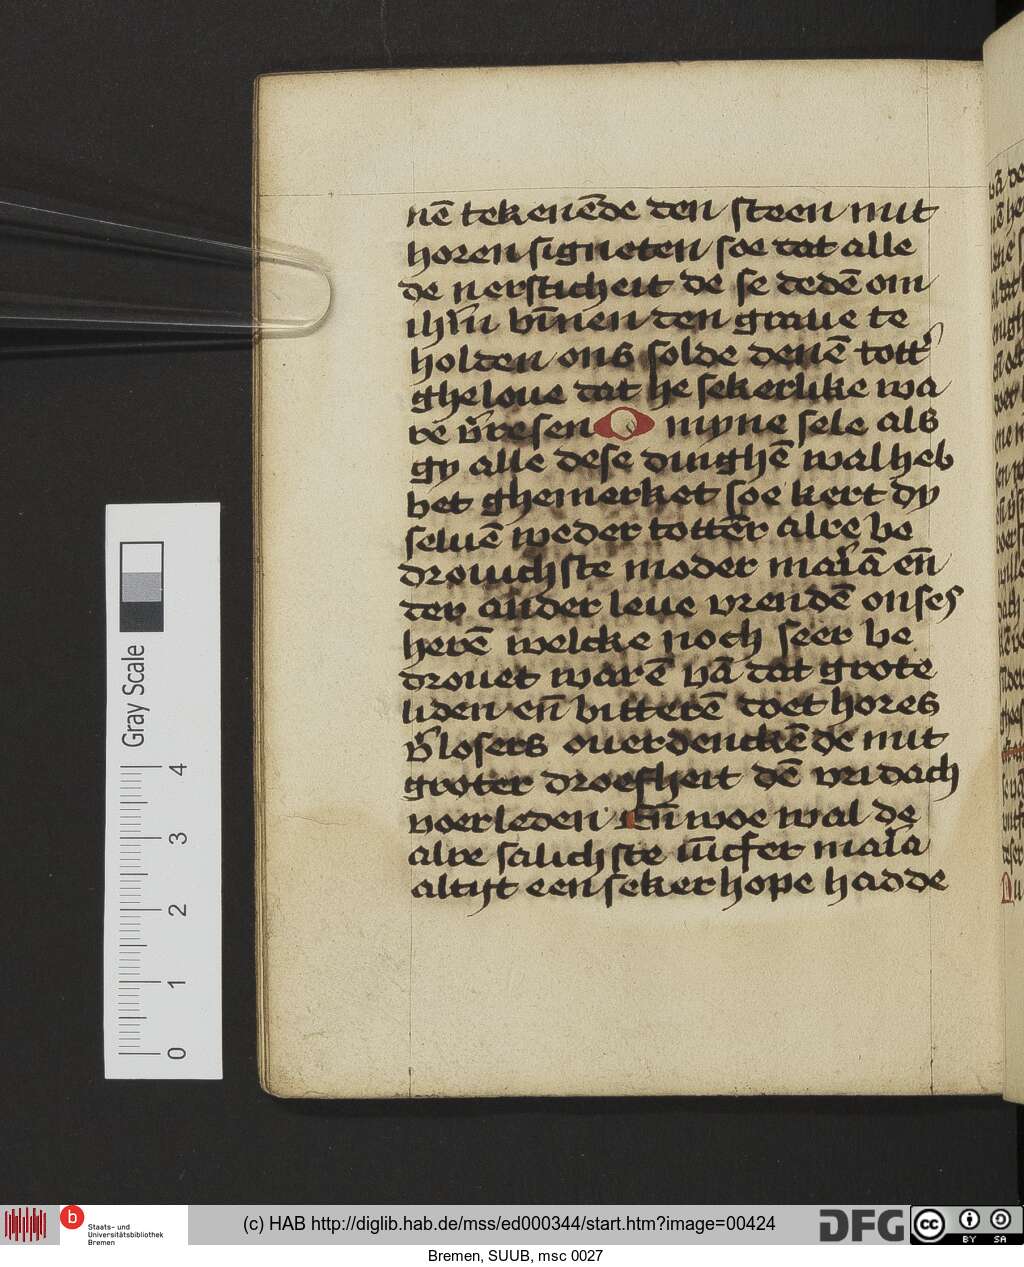 nē tekenēde den steen mit
horen signeten soe dat alle
de nersticheit de se dedē om
ihm̄ bīnen den graue te
holden ons solde denē tott'
gheloue dat he sekerlike wa
rē v'resen O myne sele als
gy alle dese dinghē wal heb
bet ghemerket soe kert dy
seluē weder tottēr alre be
drouichste moder mar'iā en̄
ter ander leue vrendē onses
herē welcke noch seer be
drouet warē vā dat grote
liden en̄ bitterē doet hores
v'losers ouerdenckēde mit
groter droefheit dē vridach
voerleden En̄ woe wal de
alre salichste iūcfer mar'ia
altijt een seker hope hadde
Gray Scale
0 1 2 3 4
b
Staats- und
Universitätsbibliothek
Bremen
(c) HAB http://diglib.hab.de/mss/ed000344/start.htm?image=00424
DFG
cc BY SA
Bremen, SUUB, msc 0027